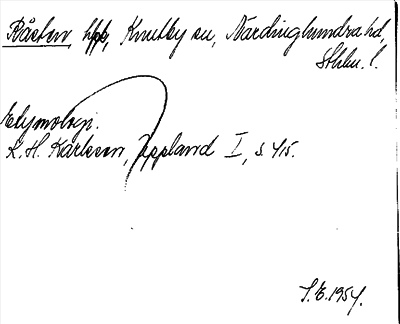 Råsten, hpl, Knutby sn, Närdinghundra hd,
Sthlm. l.
Etymologi.
K. H. Karlsson, Uppland I, s. 415.
S.E. 1954.